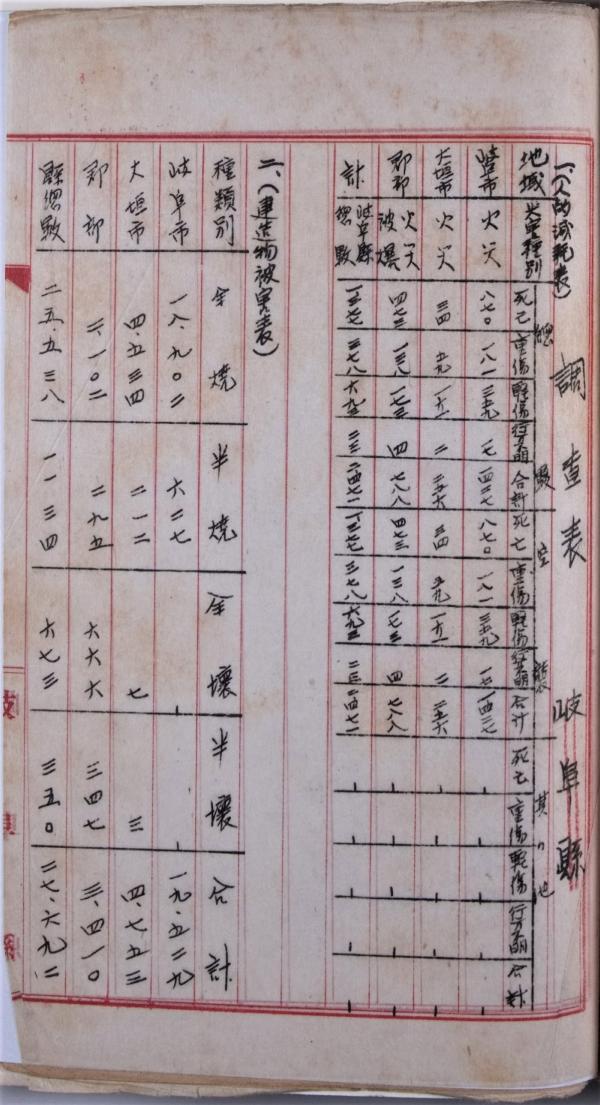 調査表 岐阜縣
一、(人的減耗表)
地域 災害種別 總數 死亡 重傷 輕傷 行方不明 合計 空襲 死亡 重傷 輕傷 行方不明 合計 其ノ他 死亡 重傷 輕傷 行方不明 合計
岐阜市 火災 八七〇 一八一 三五九 一七 一四二七 八七〇 一八一 三五九 一七 一四二七
大垣市 火災 三四 五九 一六一 二 二五六 三四 五九 一六一 二 二五六
郡部 火災 被爆 四七三 一三八 一七三 四 七八八 四七三 一三八 一七三 四 七八八
計 岐阜縣總數 一三七七 三七八 六九三 二三 二四七一 一三七七 三七八 六九三 二三 二四七一
二、(建造物被害表)
種類別 全燒 半燒 全壞 半壞 合計
岐阜市 一八.九〇二 六二七 一九.五二九
大垣市 四.五三四 二一二 七 三 四.七五三
郡部 二.一〇二 二九五 六六六 三四七 三.四一〇
縣總數 二五.五三八 一一三四 六七三 三五〇 二七.六九二
岐阜縣